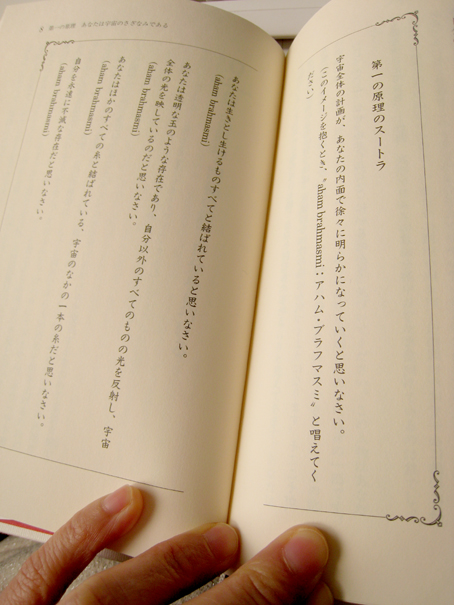 第一の原理のスートラ
宇宙全体の計画が、あなたの内面で徐々に明らかになっていくと思いなさい。
（このイメージを抱くとき、〝aham brahmasmi：アハム・ブラフマスミ〟と唱えてく
ださい）
あなたは生きとし生けるものすべてと結ばれていると思いなさい。
(aham brahmasmi)
あなたは透明な玉のような存在であり、自分以外のすべてのものの光を反射し、宇宙
全体の光を映しているのだと思いなさい。
(aham brahmasmi)
あなたはほかのすべての糸と結ばれている、宇宙のなかの一本の糸だと思いなさい。
(aham brahmasmi)
自分を永遠に不滅な存在だと思いなさい。
(aham brahmasmi)
第一の原理 あなたは宇宙のさざなみである